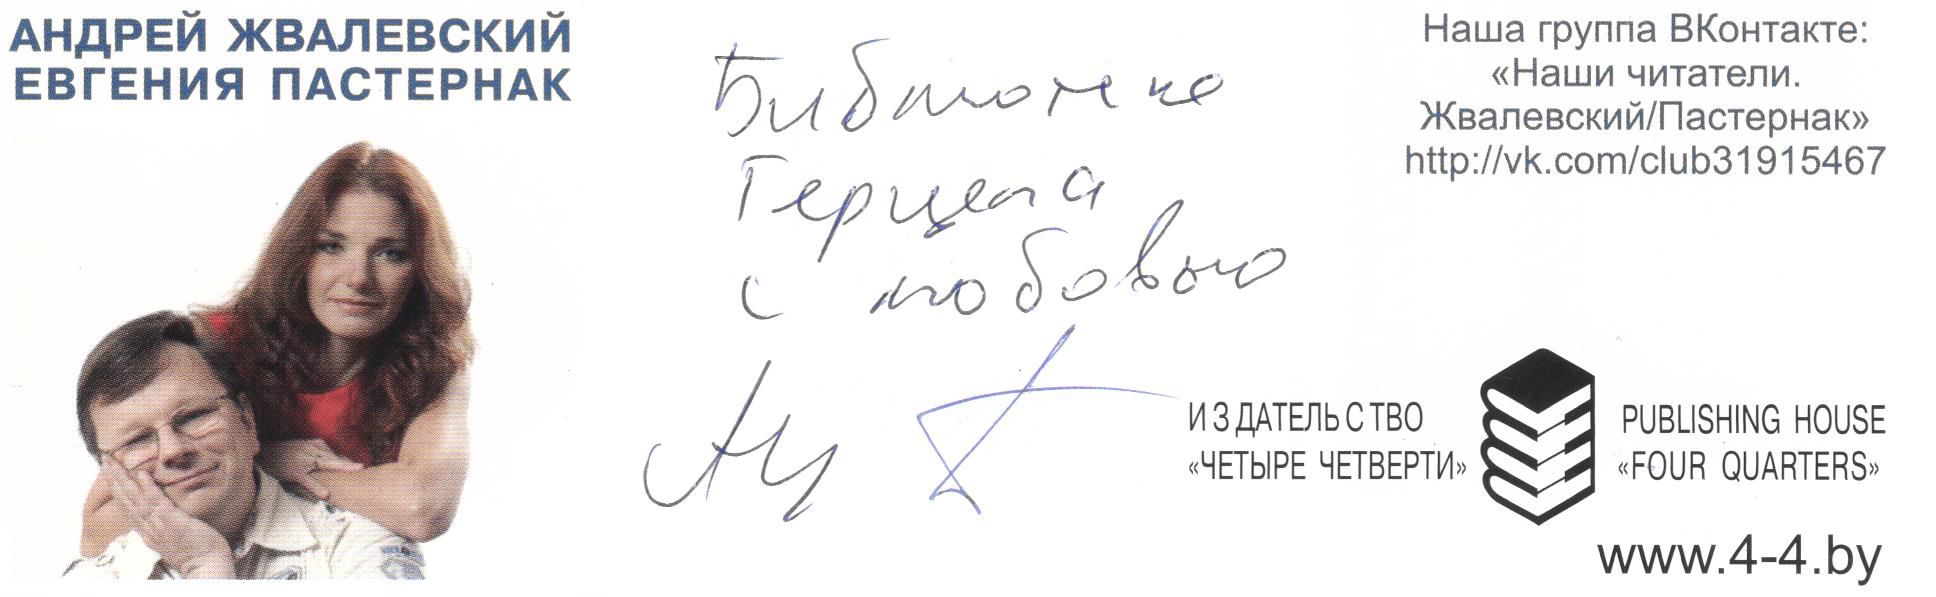 АНДРЕЙ ЖВАЛЕВСКИЙ
ЕВГЕНИЯ ПАСТЕРНАК
Библиотеке
Герцена
с любовью
Наша группа ВКонтакте:
«Наши читатели.
Жвалевский/Пастернак»
http://vk.com/club31915467
ИЗДАТЕЛЬСТВО
«ЧЕТЫРЕ ЧЕТВЕРТИ»
PUBLISHING HOUSE
«FOUR QUARTERS»
www.4-4.by